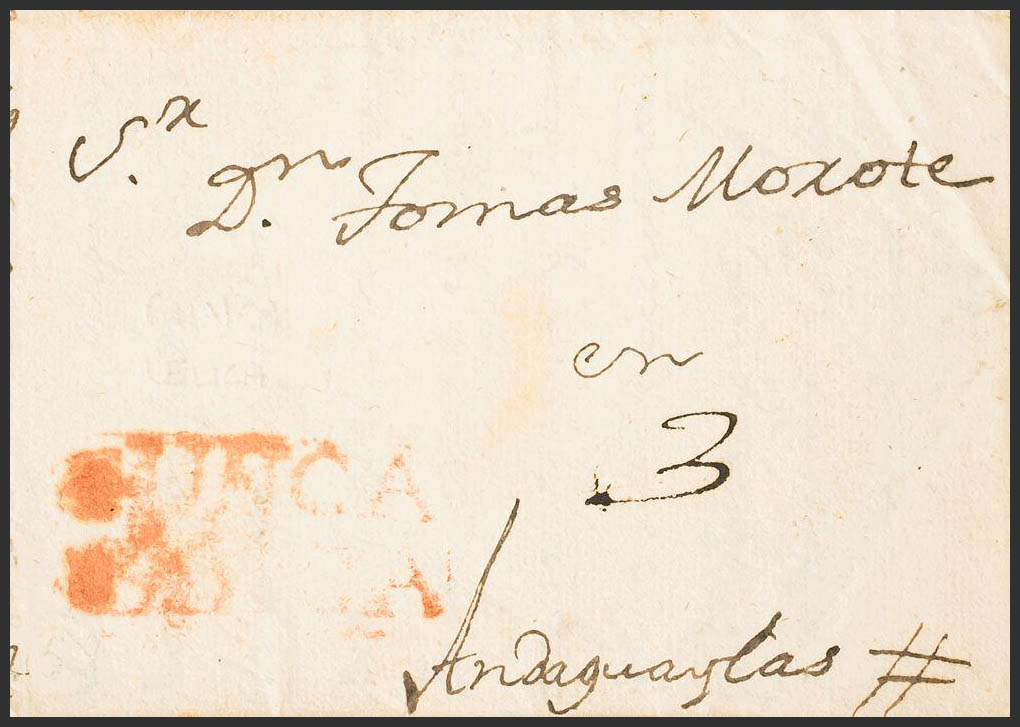 S.r
Dn. Tomas Moxote
en
3
UNCA
Andaguaylas #